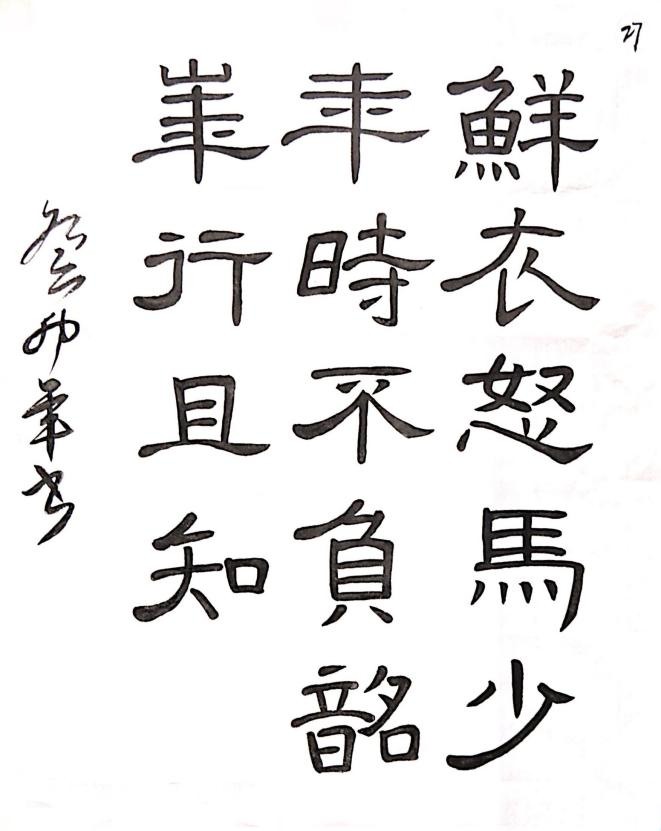 27
鮮衣怒馬少
年時不負韶
華行且知
癸卯年书